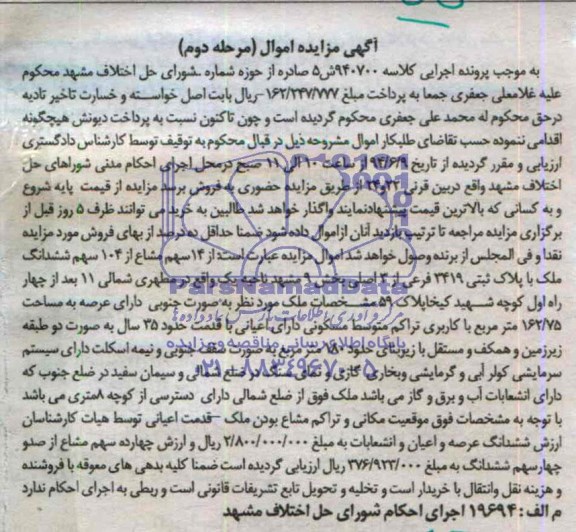 آگهی مزایده اموال (مرحله دوم)
به موجب پرونده اجرایی کلاسه ۹۴۰۷۰۰ش۵ صادره از حوزه شماره ـ شورای حل اختلاف مشهد محکوم
علیه غلامعلی جعفری جمعا به پرداخت مبلغ ۱۶۲/۲۴۷/۷۷۷ـ ریال بابت اصل خواسته و خسارت تاخیر تادیه
درحق محکوم له محمد علی جعفری محکوم گردیده است و چون تاکنون نسبت به پرداخت دیونش هیچگونه
اقدامی ننموده حسب تقاضای طلبکار اموال مشروحه ذیل در قبال محکوم به توقیف توسط کارشناس دادگستری
ارزیابی و مقرر گردیده از تاریخ ساعت ۱۰ الی ۱۱ صبح درمحل اجرای احکام مدنی شوراهای حل
اختلاف مشهد واقع دربین قرنی ۲۲و۲۴ از طریق مزایده حضوری به فروش برسد مزایده از قیمت پایه شروع
و به کسانی که بالاترین قیمت پیشنهادنمایند واگذار خواهد شد طالبین به خرید می توانند ظرف ۵ روز قبل از
برگزاری مزایده مراجعه تا ترتیب بازدید آنان ازاموال داده شود ضمنا حداقل ده درصد از بهای فروش مورد مزایده
نقدا و فی المجلس از برنده وصول خواهد شد اموال مزایده عبارت است از ۱۴سهم مشاع از ۱۰۴ سهم ششدانگ
ملک با پلاک ثبتی ۳۴۱۹ فرعی از ۳ اصلی بخش ۹ مشهد واقع در مطهری شمالی ۱۱ بعد از چهار
راه اول کوچه شهید کیخا پلاک ۵۹ مشخصات ملک مورد نظر به صورت جنوبی دارای عرصه به مساحت
۱۶۲/۷۵ متر مربع با کاربری تراکم متوسط مسکونی دارای اعیانی با قدمت حدود ۳۵ سال به صورت دو طبقه
زیرزمین و همکف و مستقل با زیربنای حدود ۱۸۰ متر مربع به صورت سقف چوبی و نیمه اسکلت دارای سیستم
سرمایشی کولر آبی و گرمایشی وبخاری گازی و نمای سنگ در ضلع شمالی و سیمان سفید در ضلع جنوب که
دارای انشعابات آب و برق و گاز می باشد ملک فوق از ضلع شمالی دارای دسترسی از کوچه ۸متری می باشد
با توجه به مشخصات فوق موقعیت مکانی و تراکم مشاع بودن ملک – قدمت اعیانی توسط هیات کارشناسان
ارزش ششدانگ عرصه و اعیان و انشعابات به مبلغ ۲/۸۰۰/۰۰۰/۰۰۰ ریال و ارزش چهارده سهم مشاع از صدو
چهارسهم ششدانگ به مبلغ ۳۷۶/۹۲۳/۰۰۰ ریال ارزیابی گردیده است ضمنا کلیه بدهی های معوقه با فروشنده
و هزینه نقل وانتقال با خریدار است و تخلیه و تحویل تابع تشریفات قانونی است و ربطی به اجرای احکام ندارد
م الف : ۱۹۶۹۴ اجرای احکام شورای حل اختلاف مشهد
ParsNamadData
مرکز فرآوری اطلاعات پارس نماد داده ها
پایگاه اطلاع رسانی مناقصه و مزایده
۰۲۱-۸۸۳۴۹۶۷۰-۵